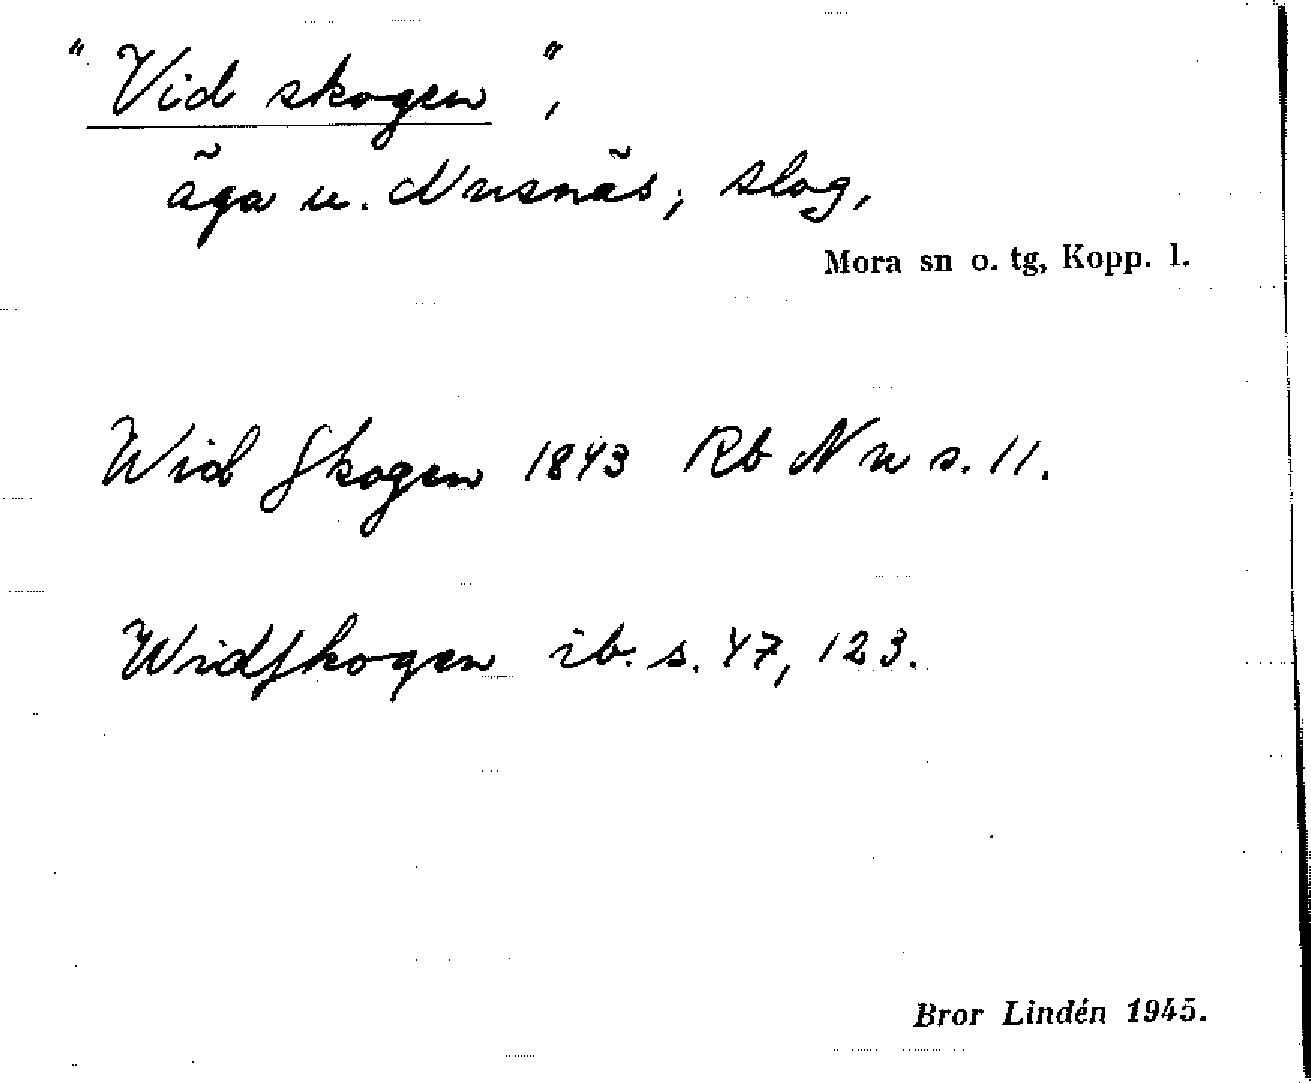 "Vid skogen",
äga u. Nusnäs, slog,
Mora sn o. tg, Kopp. l.
Wid Skogen 1843 Rb Nu s. 11.
Widskogen ib. s. 47, 123.
Bror Lindén 1945.